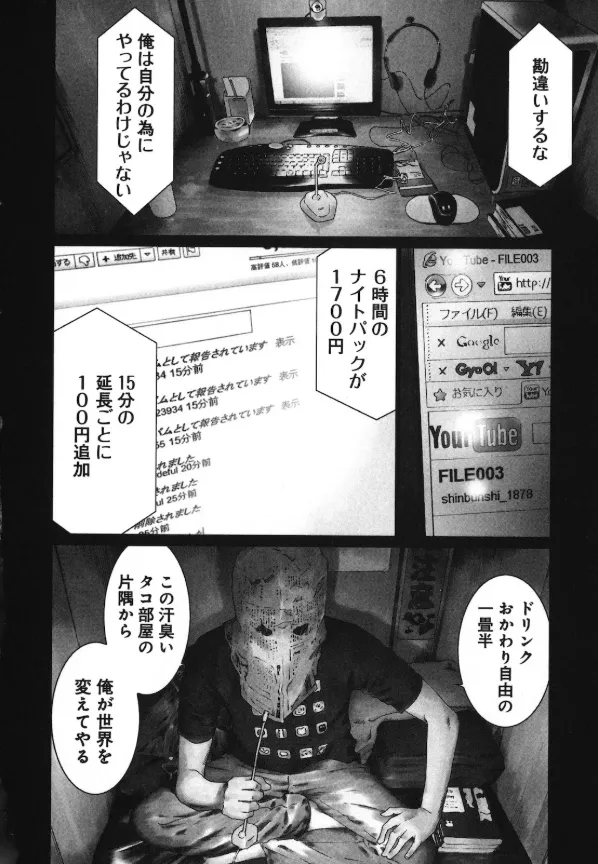 勘違いするな
俺は自分の為に
やってるわけじゃない
YouTube - FILE003
http://
ファイル(F) 編集(E)
× Google
× GyaO!
お気に入り
YouTube
FILE003
shinbunshi_1878
6時間の
ナイトパックが
1700円
+ 追加先
共有
高評価 58人、低評価
ムとして報告されています 表示
34 15分前
ムとして報告されています 表示
23934 15分前
パムとして報告されています 表示
55 15分前
されました
deful 20分前
されました
ul 25分前
削除されました
25分前
15分の
延長ごとに
100円追加
ドリンク
おかわり自由の
一畳半
この汗臭い
タコ部屋の
片隅から
俺が世界を
変えてやる